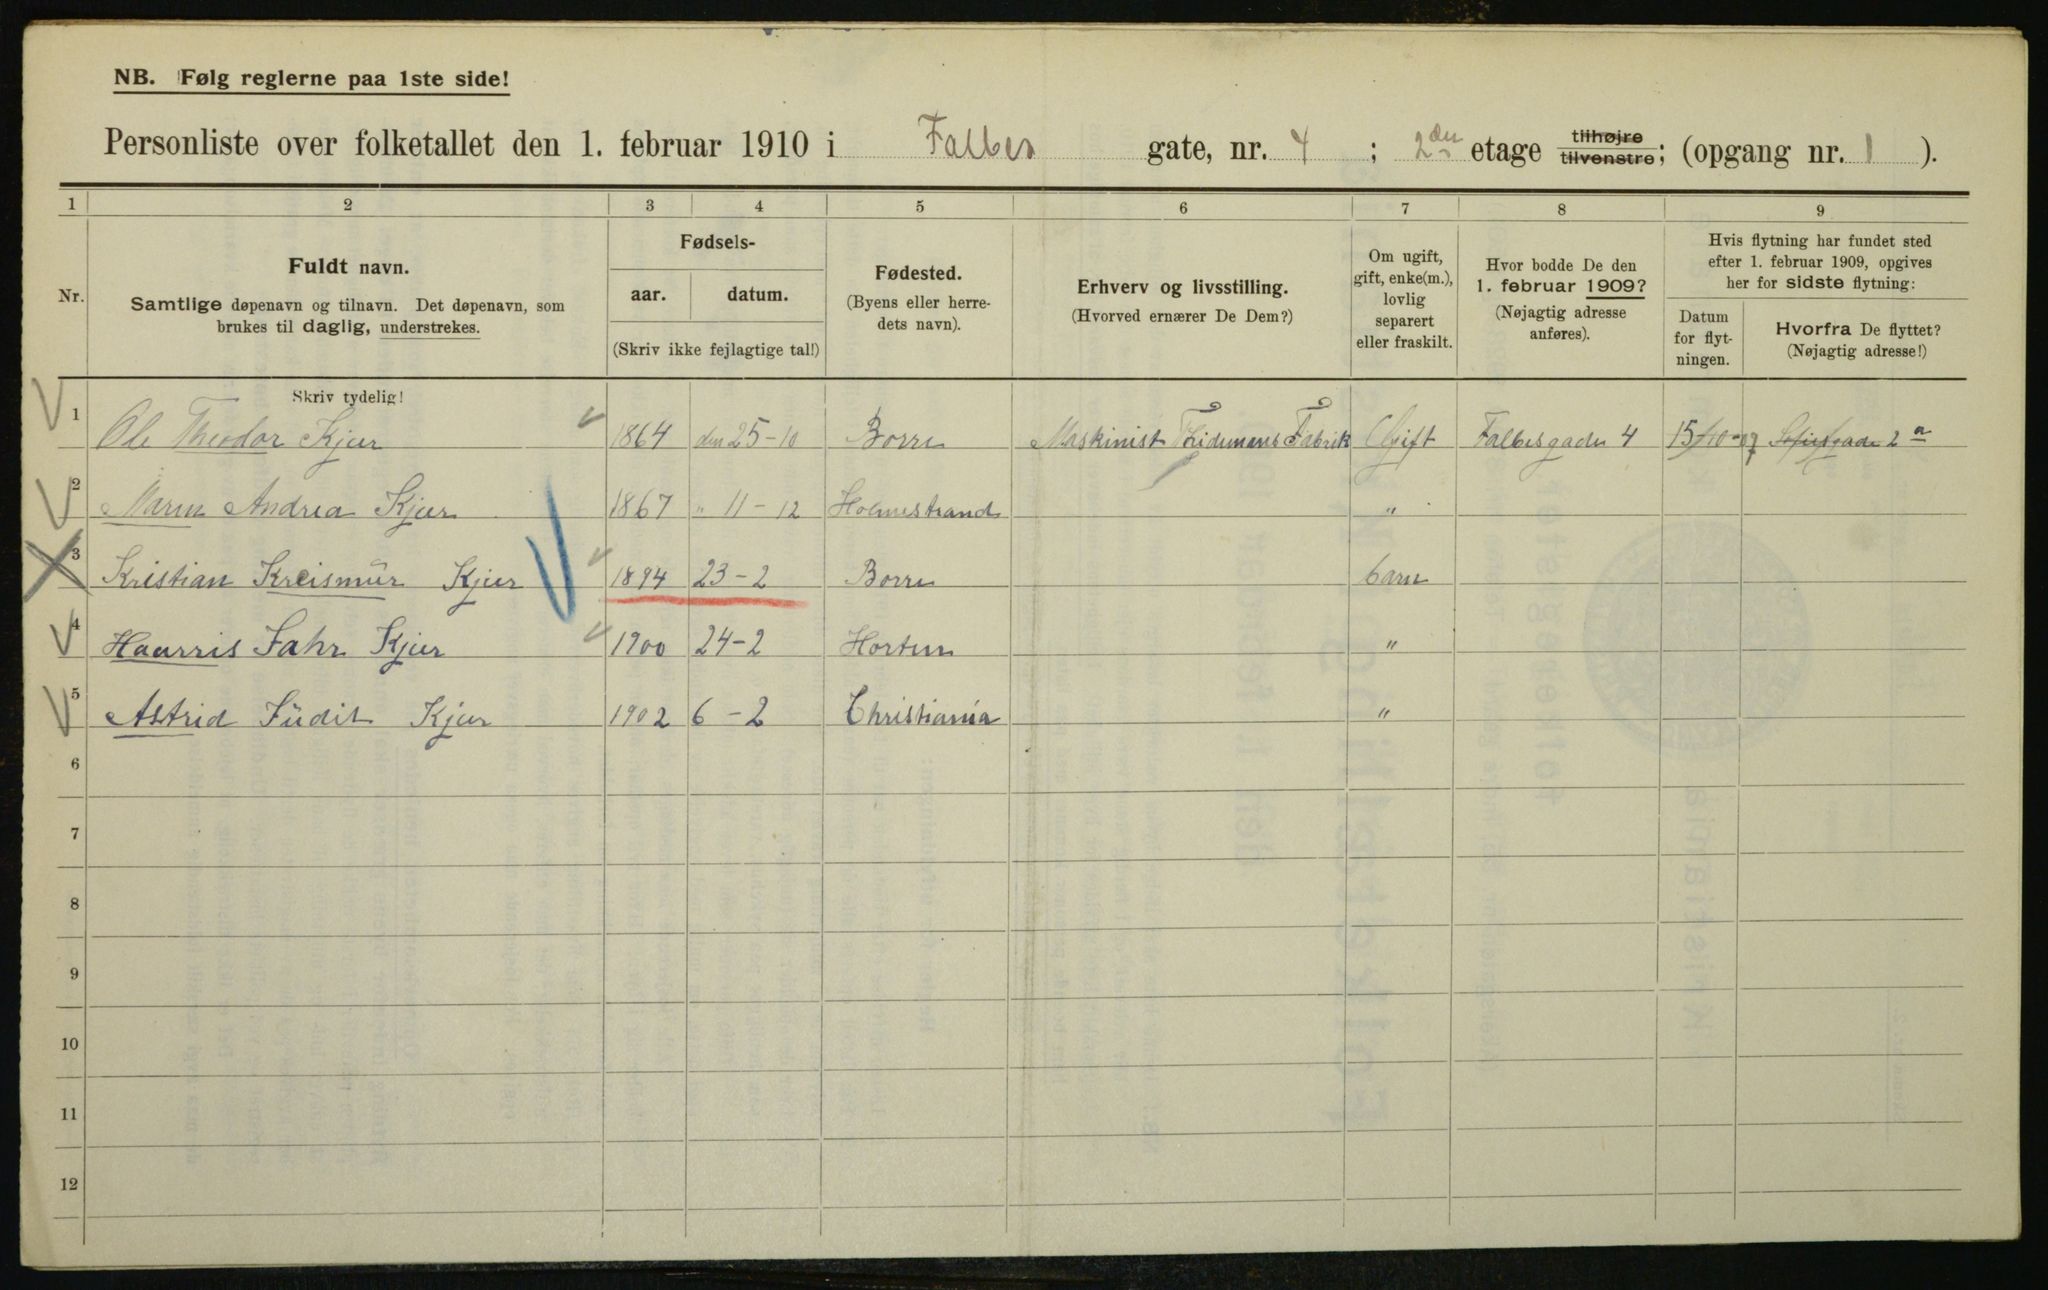 NB. Følg reglerne paa 1ste side!
Personliste over folketallet den 1. februar 1910 i Falbes gate, nr. 4 ; 2den etage tilhøjre tilvenstre; (opgang nr. 1 ).
1 2 3 4 5 6 7 8 9
Nr.
Fuldt navn.
Samtlige døpenavn og tilnavn. Det døpenavn, som
brukes til daglig, understrekes.
Fødsels-
aar. datum.
(Skriv ikke fejlagtige tal!)
Fødested.
(Byens eller herre-
dets navn).
Erhverv og livsstilling.
(Hvorved ernærer De Dem?)
Om ugift,
gift, enke(m.),
lovlig
separert
eller fraskilt.
Hvor bodde De den
1. februar 1909?
(Nøjagtig adresse
anføres).
Hvis flytning har fundet sted
efter 1. februar 1909, opgives
her for sidste flytning:
Datum
for flyt-
ningen.
Hvorfra De flyttet?
(Nøjagtig adresse!)
Skriv tydelig!
1 Ole Theodor Kjær 1864 den 25-10 Borre Maskinist Tidemans Fabrik Gift Falbesgade 4 15/10-07 Sofiesgade 2 a
2 Maren Andrea Kjær 1867 " 11-12 Holmestrand "
3 Kristian Kreismür Kjær 1894 23-2 Borre barn
4 Haurris Fahr Kjær 1900 24-2 Horten "
5 Astrid Jüdit Kjær 1902 6-2 Christiania "
6
7
8
9
10
11
12